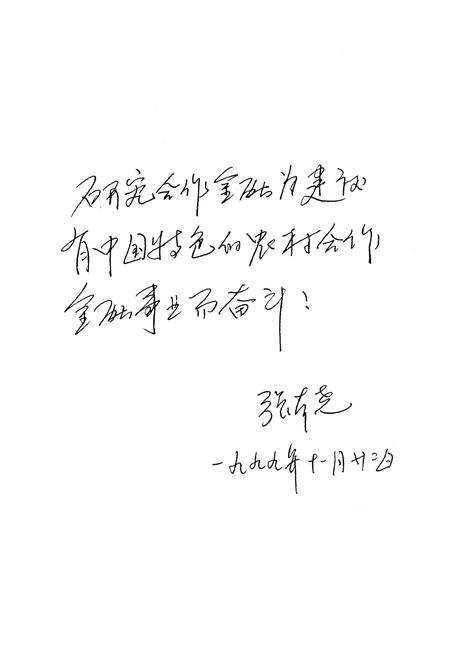 研究合作金融为建设
有中国特色的农村合作
金融事业而奋斗!
张本尧
一九九九年十一月廿二日